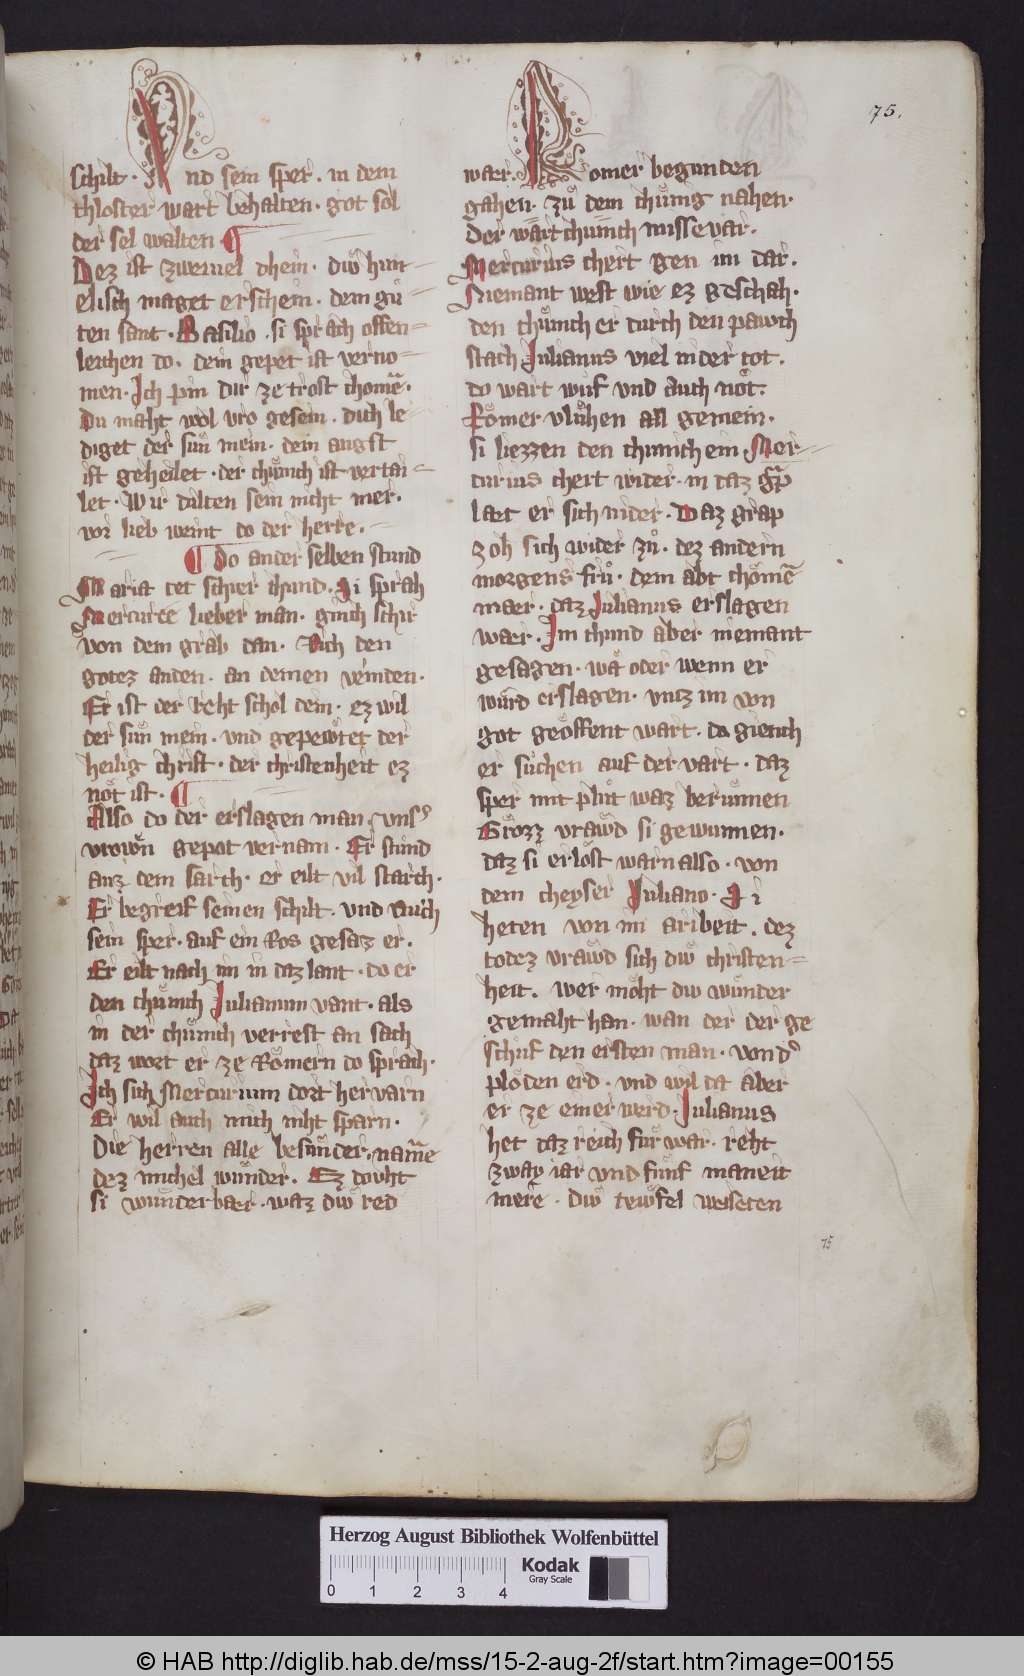 75.
schilt. Vnd sein sper. in dem
chloster wart behalten. got sol
der sel walten ¶
Dez ist zweiuel dhein. diẘ him=
elisch maget erschein. dem gu=
ten sant. Basilio. si sprach offen=
leichen do. dein gepet ist verno=
men. Ich pin dir ze trost chomē.
Du maht wol vro gesein. dich le=
diget der sun mein. dein angst
ist geheilet. der chuͤnich ist vertai=
let. Wir dulten sein nicht mer.
vor lieb weint do der herre.
¶ Do an der selben stund
Maria tet schier chund. Si sprah
Mercurie lieber man. ginch schir
von dem grab dan. Rich den
gotez anden. an deinen veinden.
Er ist der reht schol dein. ez wil
der sun mein. vnd gepeẘtet der
heilig christ. der christenheit ez
not ist. ¶
Also do der erslagen man. vnsˀ
vroẘn gepot vernam. Er stund
auz dem sarch. er eilt vil starch.
Er begreif seinen schilt. vnd auch
sein sper. auf ein Ros gesaz er.
Er eilt nach im in daz lant. do er
den chuͤnich Iulianum vant. als
in der chuͤnich verrest an sach
daz wort er ze Roͤmern do sprach.
Ich sich Mercurium dort her varn
Er wil auch mich niht sparn.
Die herren alle besunder. namē
dez michel wunder. Ez douht
si wunderbaer. waz diẘ red
waer. Romer begunden
gahen. zů dem chuͤnig nahen.
Der wart chuͤnich misse var.
Mercurius chert gen im dar.
Niemant west wie ez geschah.
den chuͤnich er durch den pawch
stach Iulianus viel nider tot.
do wart wuf vnd auch not.
Roͤmer vluhen all gemein.
si liezzen den chunich ein. Mer=
curius chert wider. in daz grap
lait er sich nider. Daz grap
zoh sich wider zů. dez andern
morgens frů. dem abt choͤmē
maer. daz Iulianus erslagen
waer. Im chund aber niemant
gesagen. wa oder wenn er
wurd erslagen. vntz im von
got geoffent wart. do giench
er suchen auf der vart. daz
sper mit plůt waz berunnen
Grozz vraẘd si gewunnen.
daz si erlost warn also. von
dem cheyser Iuliano. Si
heten von im aribeit. dez
todez vraẘd sich diẘ christen=
heit. wer moͤht diẘ wunder
gemaht han. wan der der ge
schuf den ersten man. von dˀ
ploden erd. vnd wil da aber
er ze einer werd. Iulianus
het daz reich fuͤr war. reht
zway iar vnd fuͤnf maneit
mere. diẘ teẘfel weiseten
75
Herzog August Bibliothek Wolfenbüttel
0 1 2 3 4
Kodak
Gray Scale
© HAB http://diglib.hab.de/mss/15-2-aug-2f/start.htm?image=00155